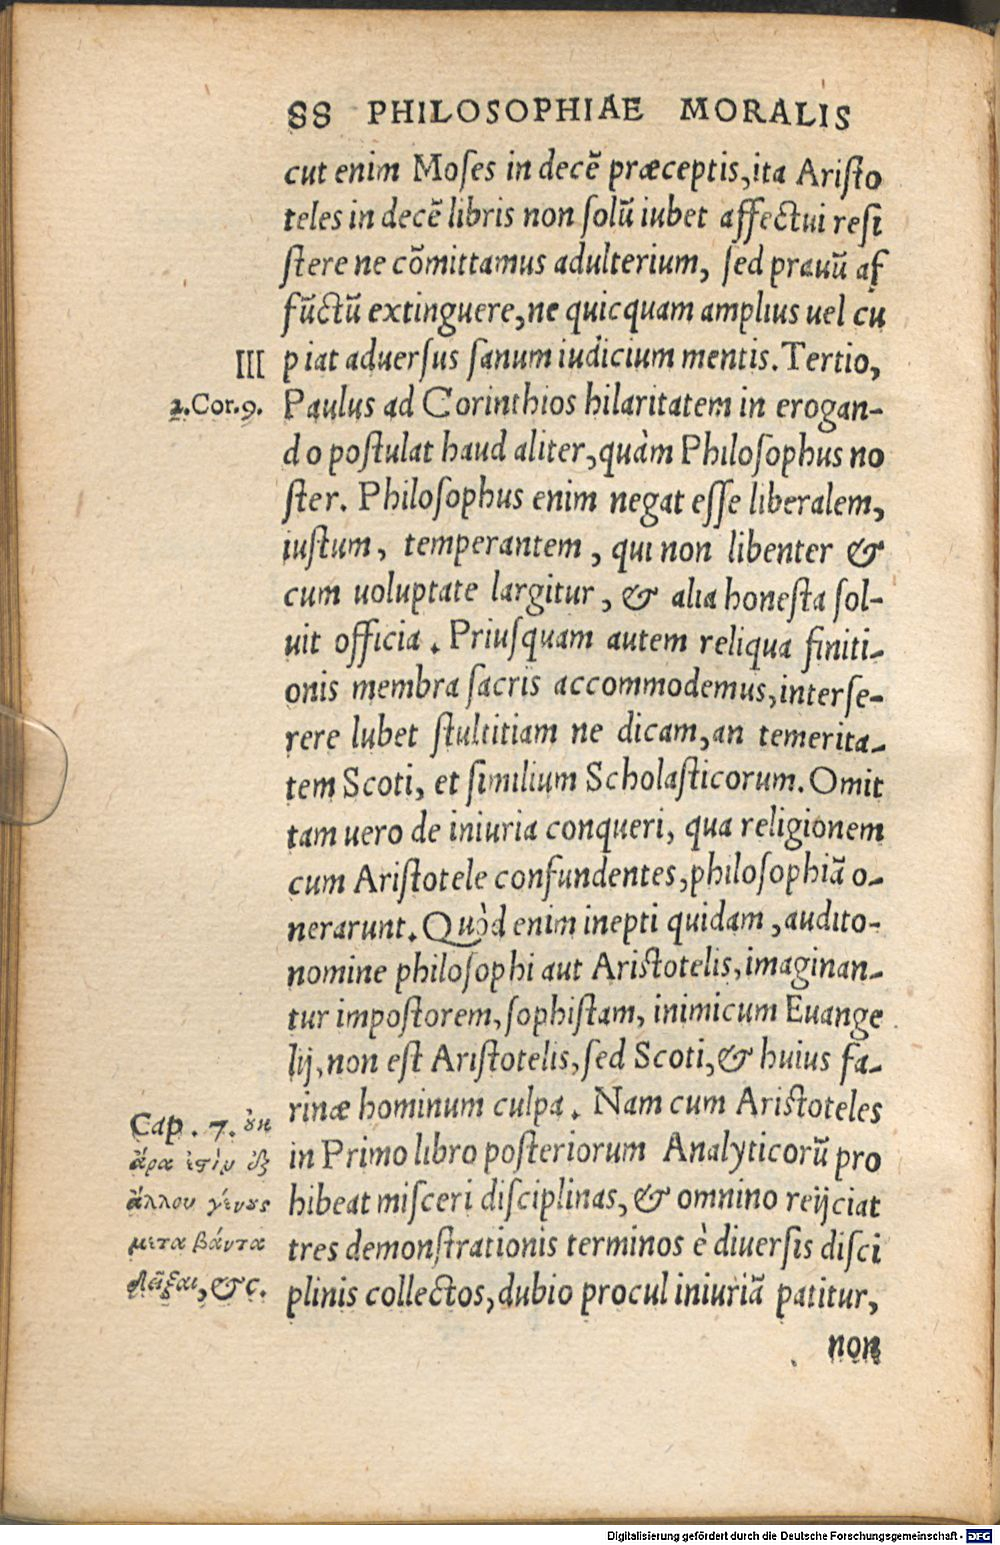 88 PHILOSOPHIAE MORALIS
cut enim Moſes in decẽ præceptis, ita Ariſto
teles in decẽ libris non ſolũ iubet affectui reſi
ſtere ne cõmittamus adulterium, ſed prauũ af
fũctũ extinguere, ne quicquam amplius uel cu
III
piat aduerſus ſanum iudicium mentis. Tertio,
2.Cor.9.
Paulus ad Corinthios hilaritatem in erogan-
do poſtulat haud aliter, quàm Philoſophus no
ſter. Philoſophus enim negat eſſe liberalem,
iuſtum, temperantem, qui non libenter &
cum uoluptate largitur, & alia honeſta ſol-
uit officia. Priuſquam autem reliqua finiti-
onis membra ſacris accommodemus, interſe-
rere lubet ſtultitiam ne dicam, an temerita-
tem Scoti, et ſimilium Scholaſticorum. Omit
tam uero de iniuria conqueri, qua religionem
cum Ariſtotele confundentes, philoſophiã o-
nerarunt. Quòd enim inepti quidam, audito-
nomine philoſophi aut Ariſtotelis, imaginan-
tur impoſtorem, ſophiſtam, inimicum Euange
lij, non eſt Ariſtotelis, ſed Scoti, & huius fa-
rinæ hominum culpa. Nam cum Ariſtoteles
in Primo libro poſteriorum Analyticorũ pro
hibeat miſceri diſciplinas, & omnino reijciat
tres demonſtrationis terminos è diuerſis diſci
plinis collectos, dubio procul iniuriã patitur,
non
Cap. 7. ὀυκ
ἄρα ἐστὶν ἐξ
ἄλλου γένους
μεταβάντα
δεῖξαι, &c.
Digitalisierung gefördert durch die Deutsche Forschungsgemeinschaft - DFG